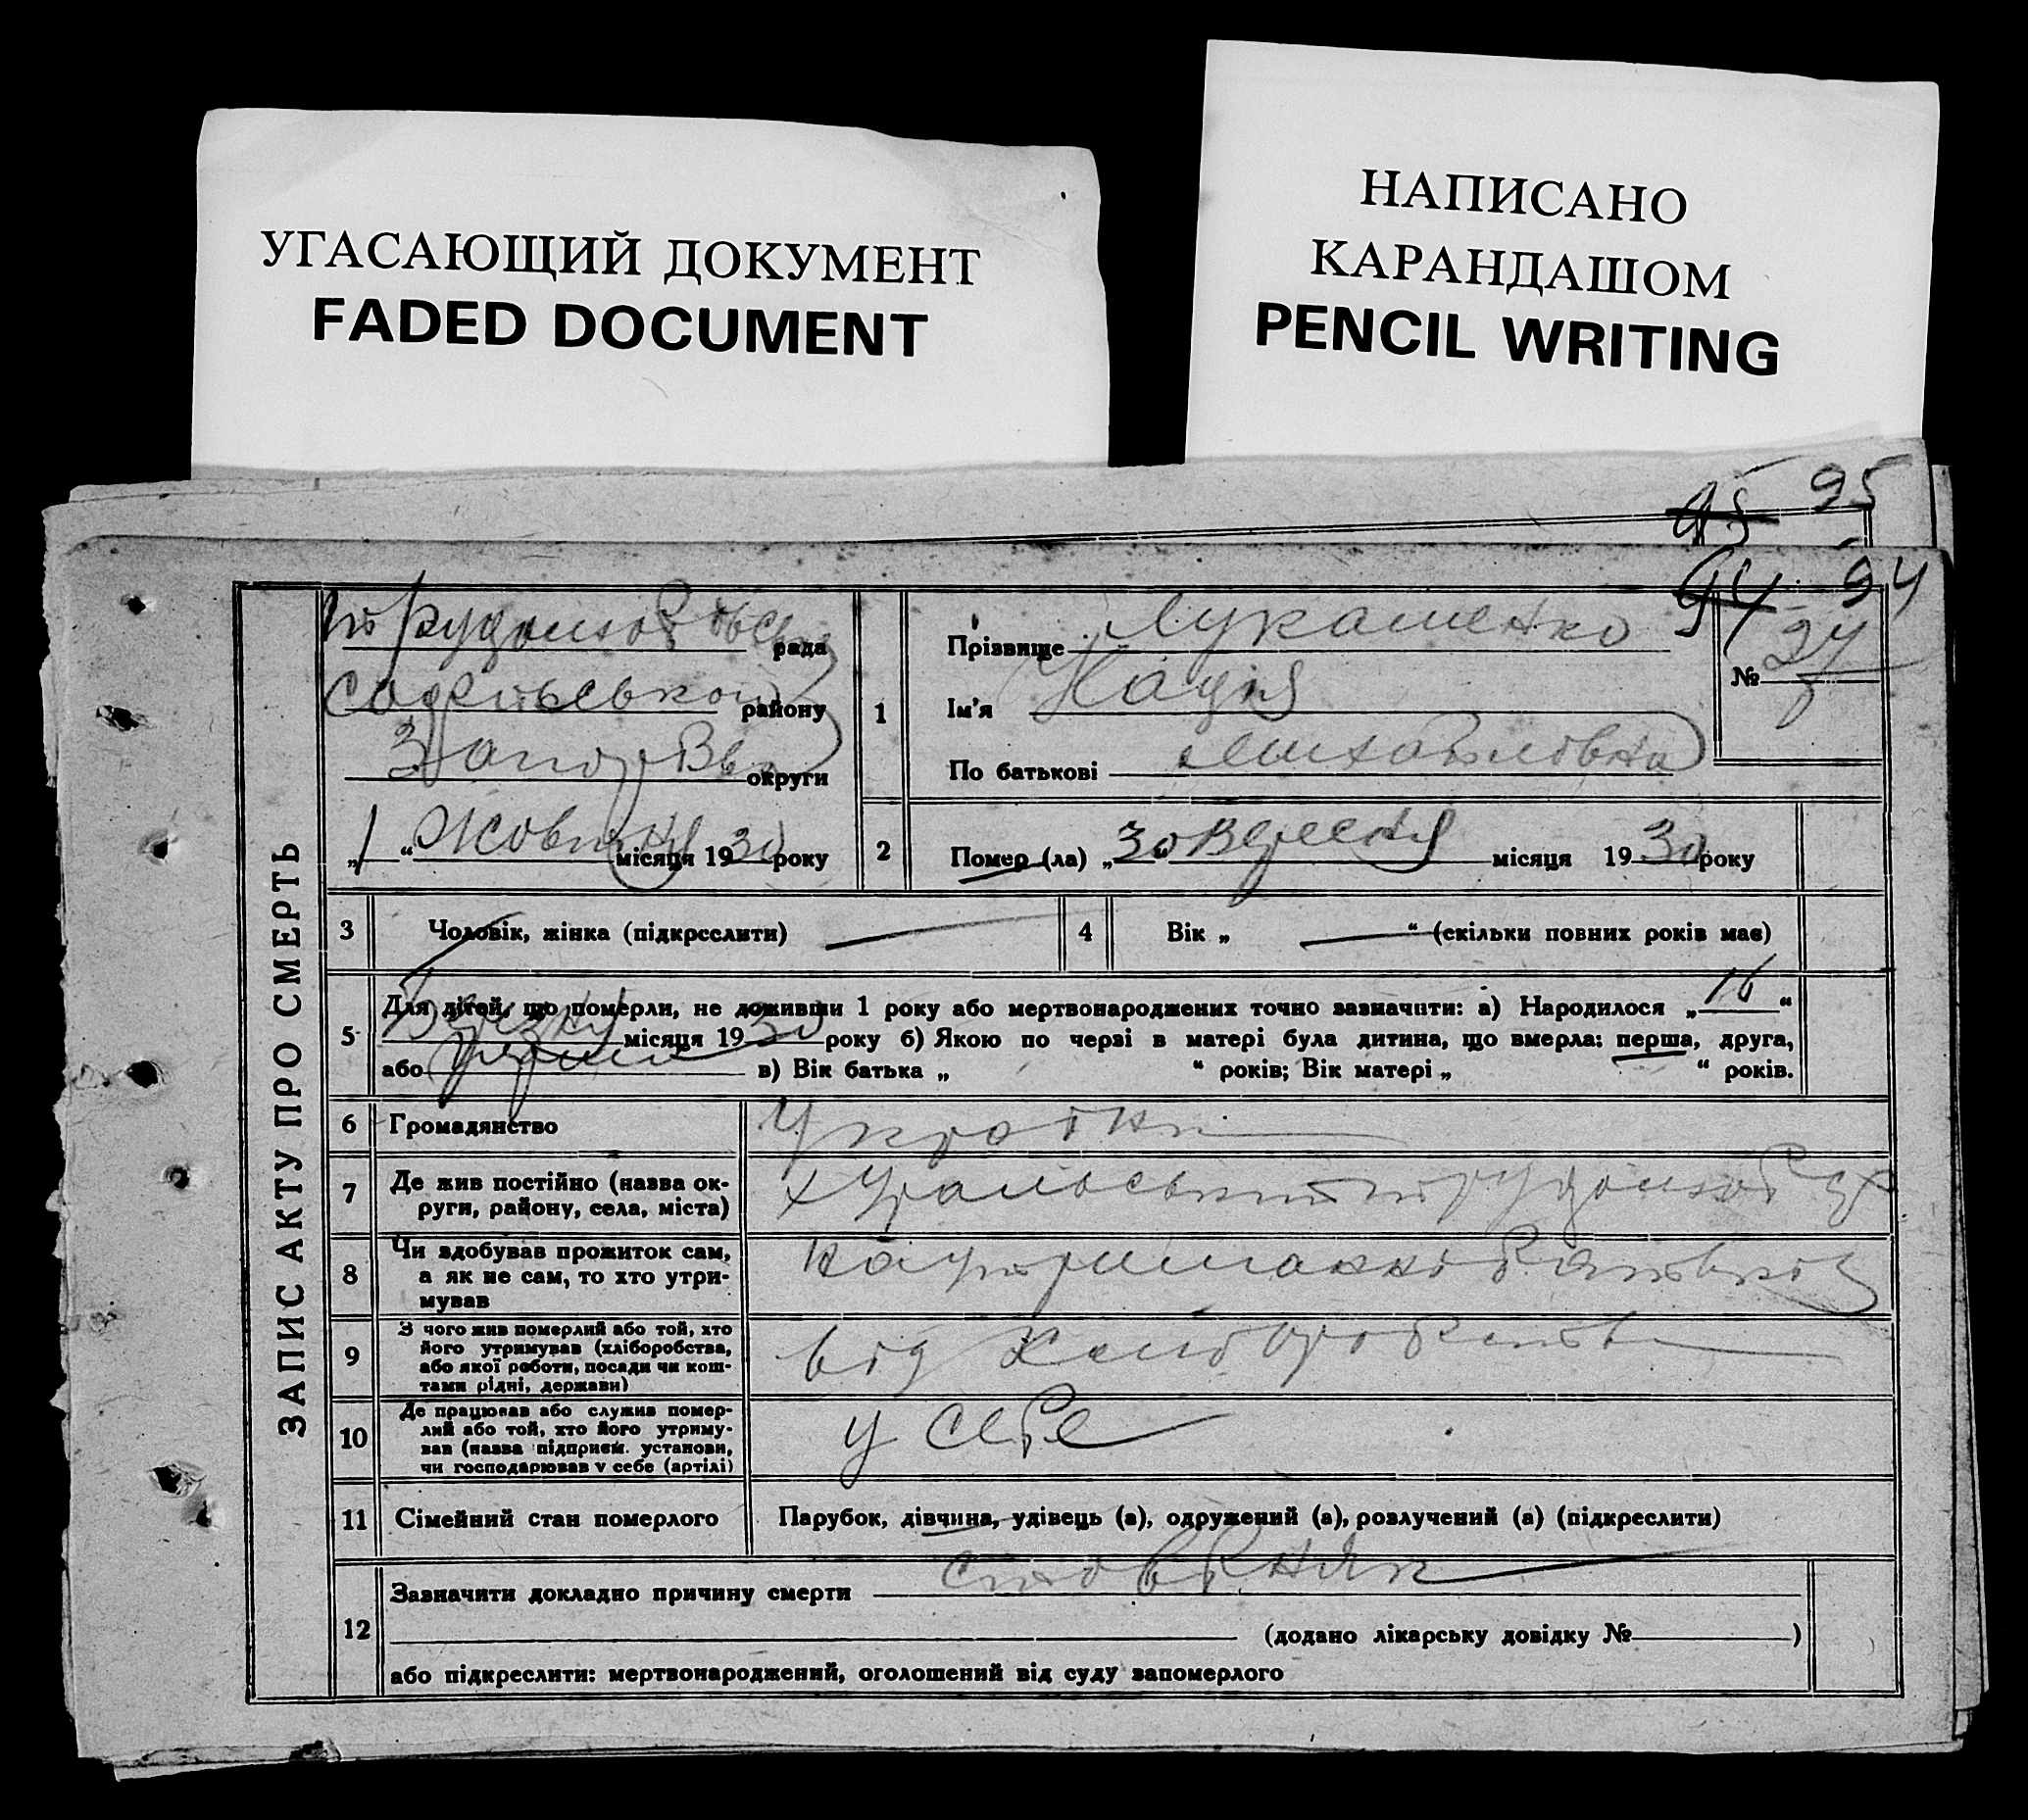 УГАСАЮЩИЙ ДОКУМЕНТ
FADED DOCUMENT
НАПИСАНО
КАРАНДАШОМ
PENCIL WRITING
45 95
94 94
ЗАПИС АКТУ ПРО СМЕРТЬ
рада
району
округи
„1“ Жовтня місяця 1930 року
1
Прізвище Лукашенко
Ім'я Надія
По батькові Михайловна
№ 94
2 Помер (ла) „30“ Вересня місяця 1930 року
3 Чоловік, жінка (підкреслити)
4 Вік „ — “ (скільки повних років має)
5 Для дітей, що померли, не доживши 1 року або мертвонароджених точно зазначити: а) Народилося „16“
Березня місяця 1930 року б) Якою по черзі в матері була дитина, що вмерла: перша, друга,
або в) Вік батька „ “ років; Вік матері „ “ років.
6 Громадянство
7 Де жив постійно (назва ок-
руги, району, села, міста)
8 Чи здобував прожиток сам,
а як не сам, то хто утри-
мував
9 З чого жив померлий або той, хто
його утримував (хліборобства,
або якої роботи, посади чи кош-
тами рідні, держави)
від Хліборобства
10 Де працював або служив помер-
лий або той, хто його утриму-
вав (назва підприєм. установи,
чи господарював у себе (артілі)
у себе
11 Сімейний стан померлого Парубок, дівчина, удівець (а), одружений (а), розлучений (а) (підкреслити)
12 Зазначити докладно причину смерти
(додано лікарську довідку № )
або підкреслити: мертвонароджений, оголошений від суду запомерлого